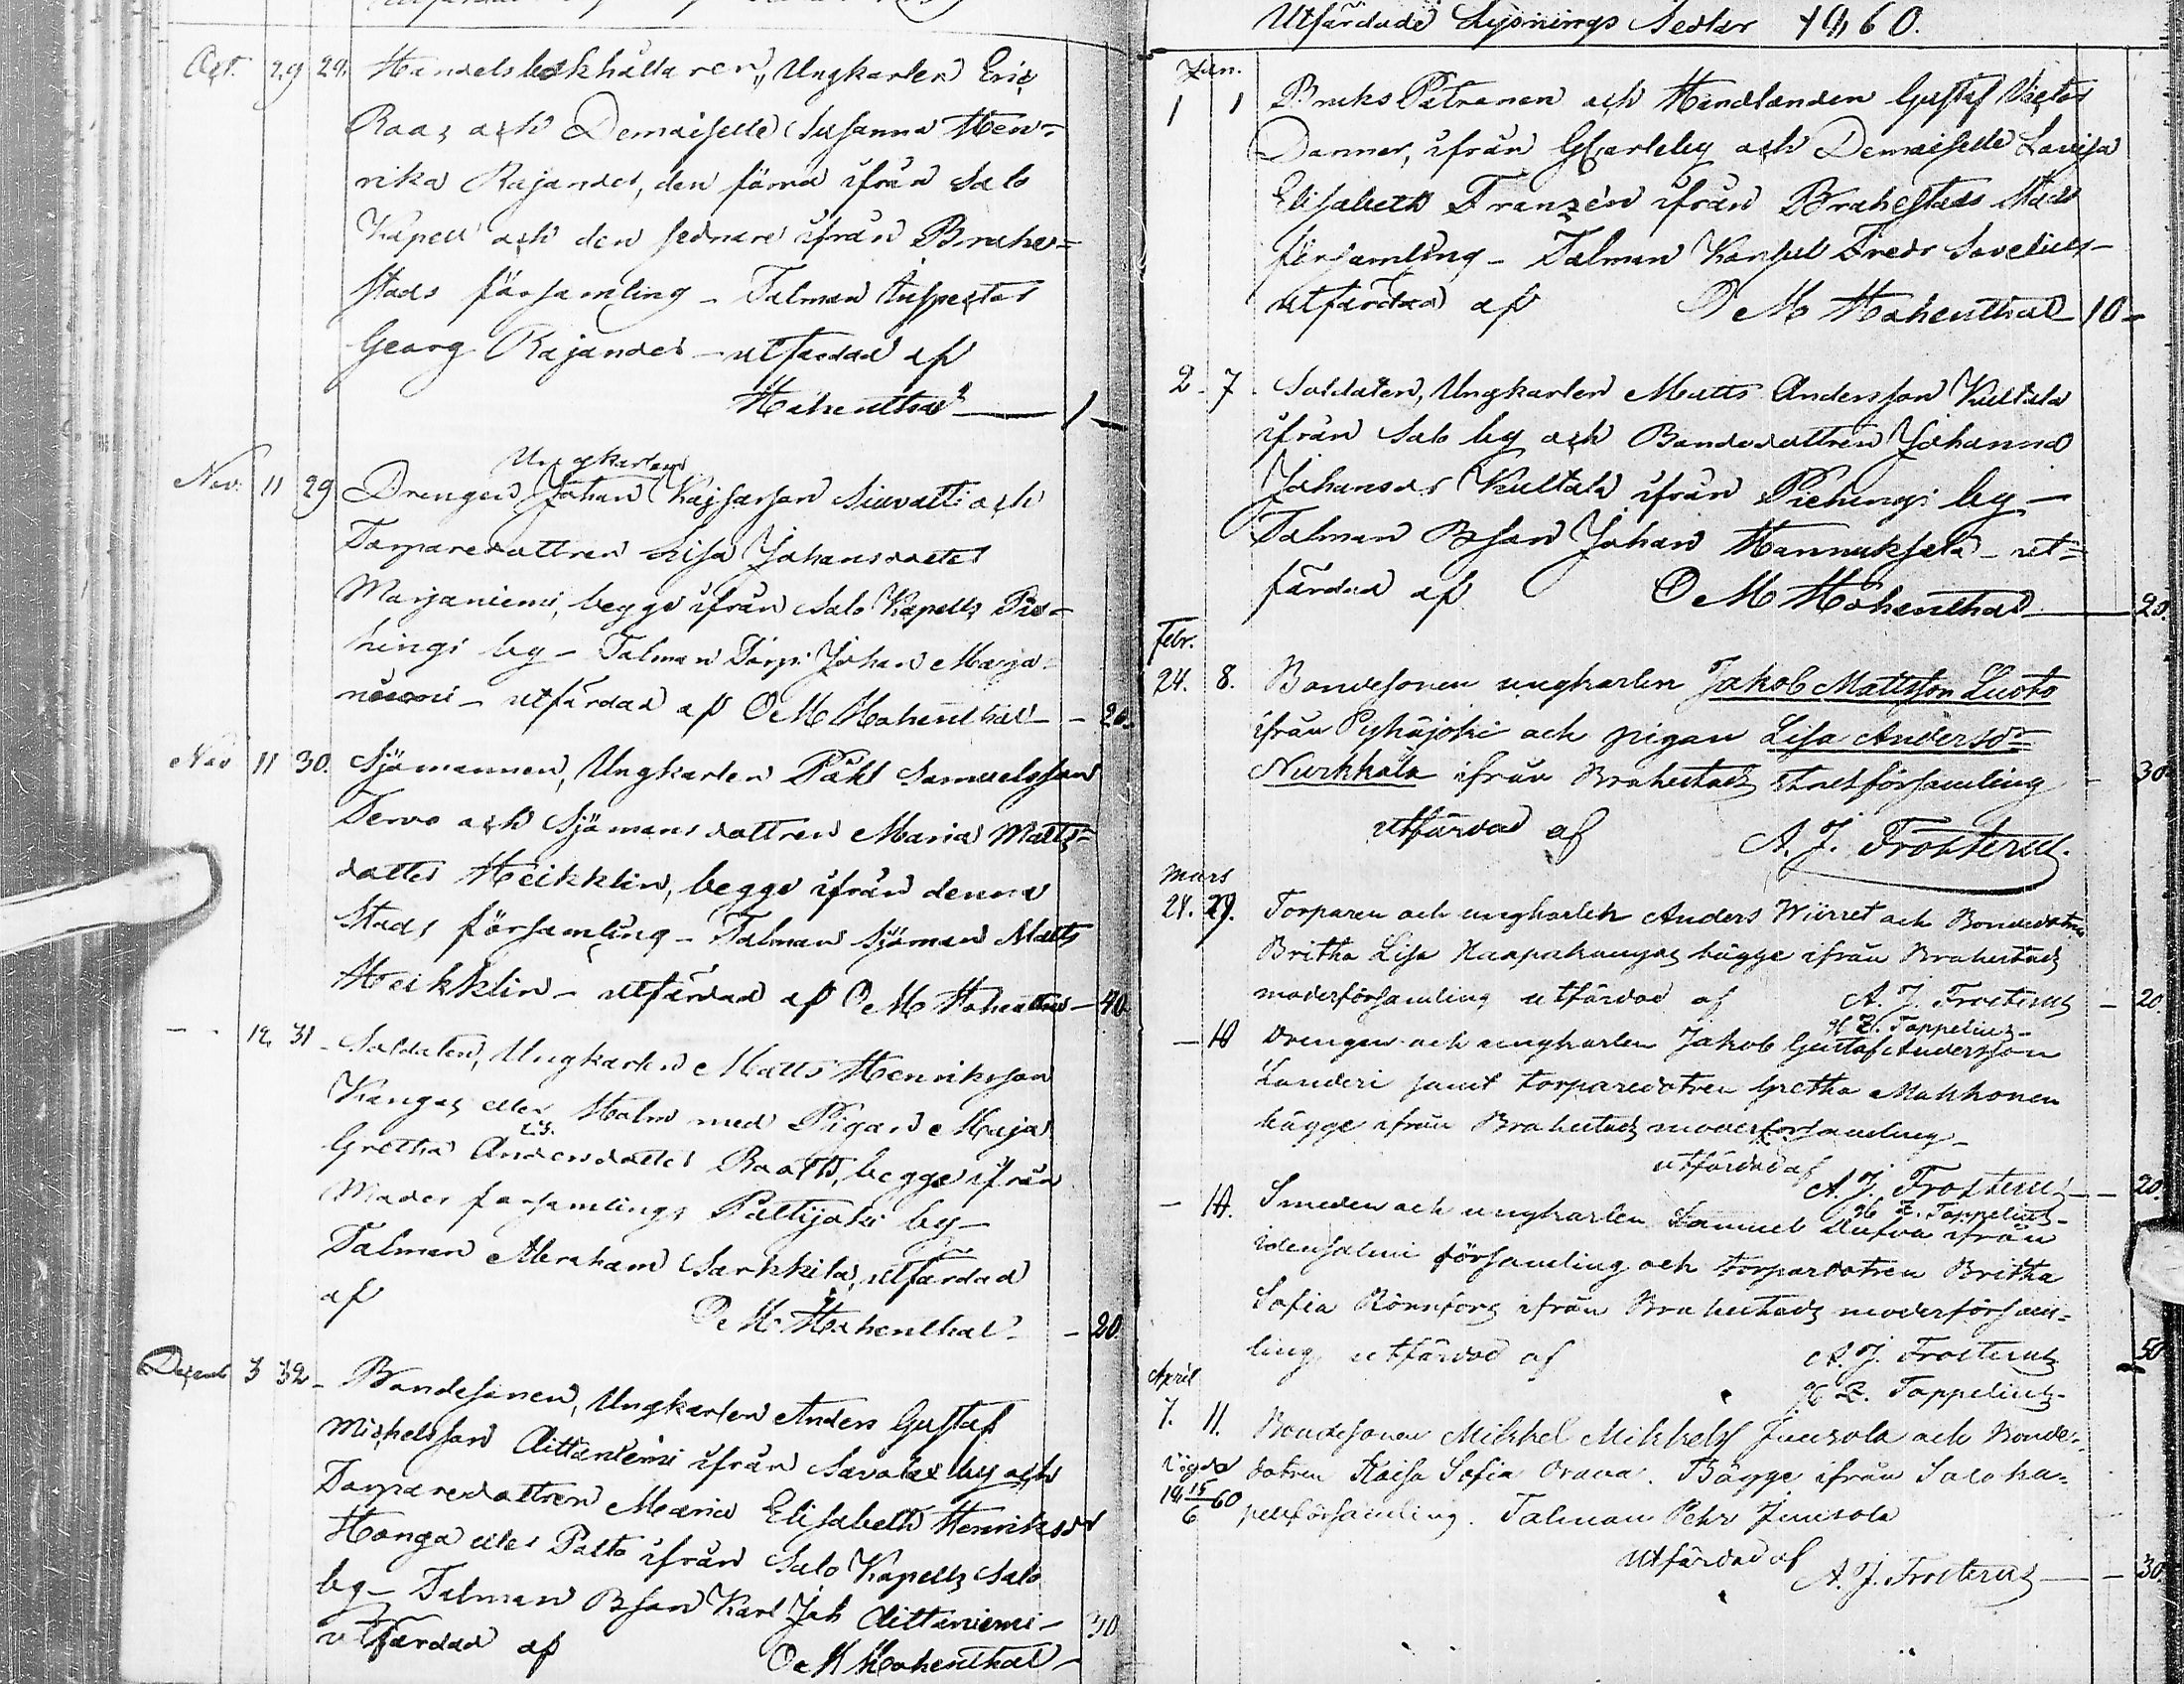 Oct. 29 29. Handelsbokhållaren, Ungkarlen Eric
Raaz och Demoiselle Susanna Hen-
rika Rajander, den förra ifrån Salo
Kapell och den sednare ifrån Brahe-
stads församling – Talman Inspector
Georg Rajander – utfärdad af
Hohenthal — 1 —
Nov. 11 29 Drengen Ungkarlen Johan Kajsarson och
Torparedottren Lisa Johansdotter
Marjaniemi, begge ifrån Salo Kapells Pie-
hingi by – Talman Torp. Johan Marja-
niemi – utfärdad af O M Hohenthal – – 20.
Nov 11 30. Sjömannen, Ungkarlen Påhl Samuelsson
Tervo och Sjömansdottren Maria Matts-
dotter Heikklin, begge ifrån denna
Stads församling – Talman Sjöman Matts
Heikklin – utfärdad af O M Hohenthal – 40
– – 12. 31 – Soldaten, Ungkarlen Matts Henriksson
Kangas eller Holm med Pigan Maja
Gretha Andersdotter Raath, begge ifrån
Moder församlings Pattijoki by –
Talman Abraham Sarkkila, utfärdad
af O M Hohenthal – – 20.
Decemb 3 32 – Bondesonen, Ungkarlen Anders Gustaf
Michelsson Aittaniemi ifrån Savolax by och
Torparedottren Maria Elisabeth Henriksdr
Honga eller Palto ifrån Salo Kapells Salo
by – Talman Bson Karl Joh Aittaniemi – 30
utfärdad af O M Hohenthal –
Utfärdade Lysnings Sedlar 1860.
Jan.
1 1 Bruks Patronen och Handlanden Gustaf Victor
Donner, ifrån GCarleby och Demoiselle Lovisa
Elisabeth Franzén ifrån Brahestads Stads
församling – Talman Konsul Fredr Sovelius –
utfärdad af O M Hohenthal 10 –
2 – 7. Soldaten, Ungkarlen Matts Andersson Kultala
ifrån Salo by och Bondedottren Johanna
Johansdr Kultala ifrån Piehingi by –
Talman Bson Johan Hannuksela – ut-
färdad af O M Hohenthal — 20.
Febr.
24. 8. Bondesonen ungkarlen Jakob Mattsson Luoto
ifrån Pyhäjoki och pigan Lisa Andersdr
Nurkkala ifrån Brahestads stadsförsamling – 30
utfärdad af A. J. Frosterus.
Mars
Torparen och ungkarlen Anders Wiirret och Bondedotren
Britha Lisa Haapakangas bägge ifrån Brahestads
moderförsamling utfärdad af A. J. Frosterus – 20.
Z. Toppelius –
– 10 Drengen och ungkarlen Jakob Gustaf Andersson
Landeri samt torparedotren Gretha Makkonen
bägge ifrån Brahestads moderförsamling –
utfärdad af
A. J. Frosterus – – 20.
Z. Toppelius –
– Smeden och ungkarlen Samuel Rufva ifrån
idensalmi församling och torparedotren Britha
Sofia Rönnfors ifrån Brahestads moderförsam-
ling, utfärdad af A. J. Frosterus 50
Z. Toppelius –
April
7. 11. Bondesonen Mikkel Mikkelss Junsola och Bonde-
Vigda dotren Kaisa Sofia Orava. Bägge ifrån Salo ka-
15/6 60 pellförsamling. Talman Pehr Junsola
utfärdad af A. J. Frosterus — – 30.